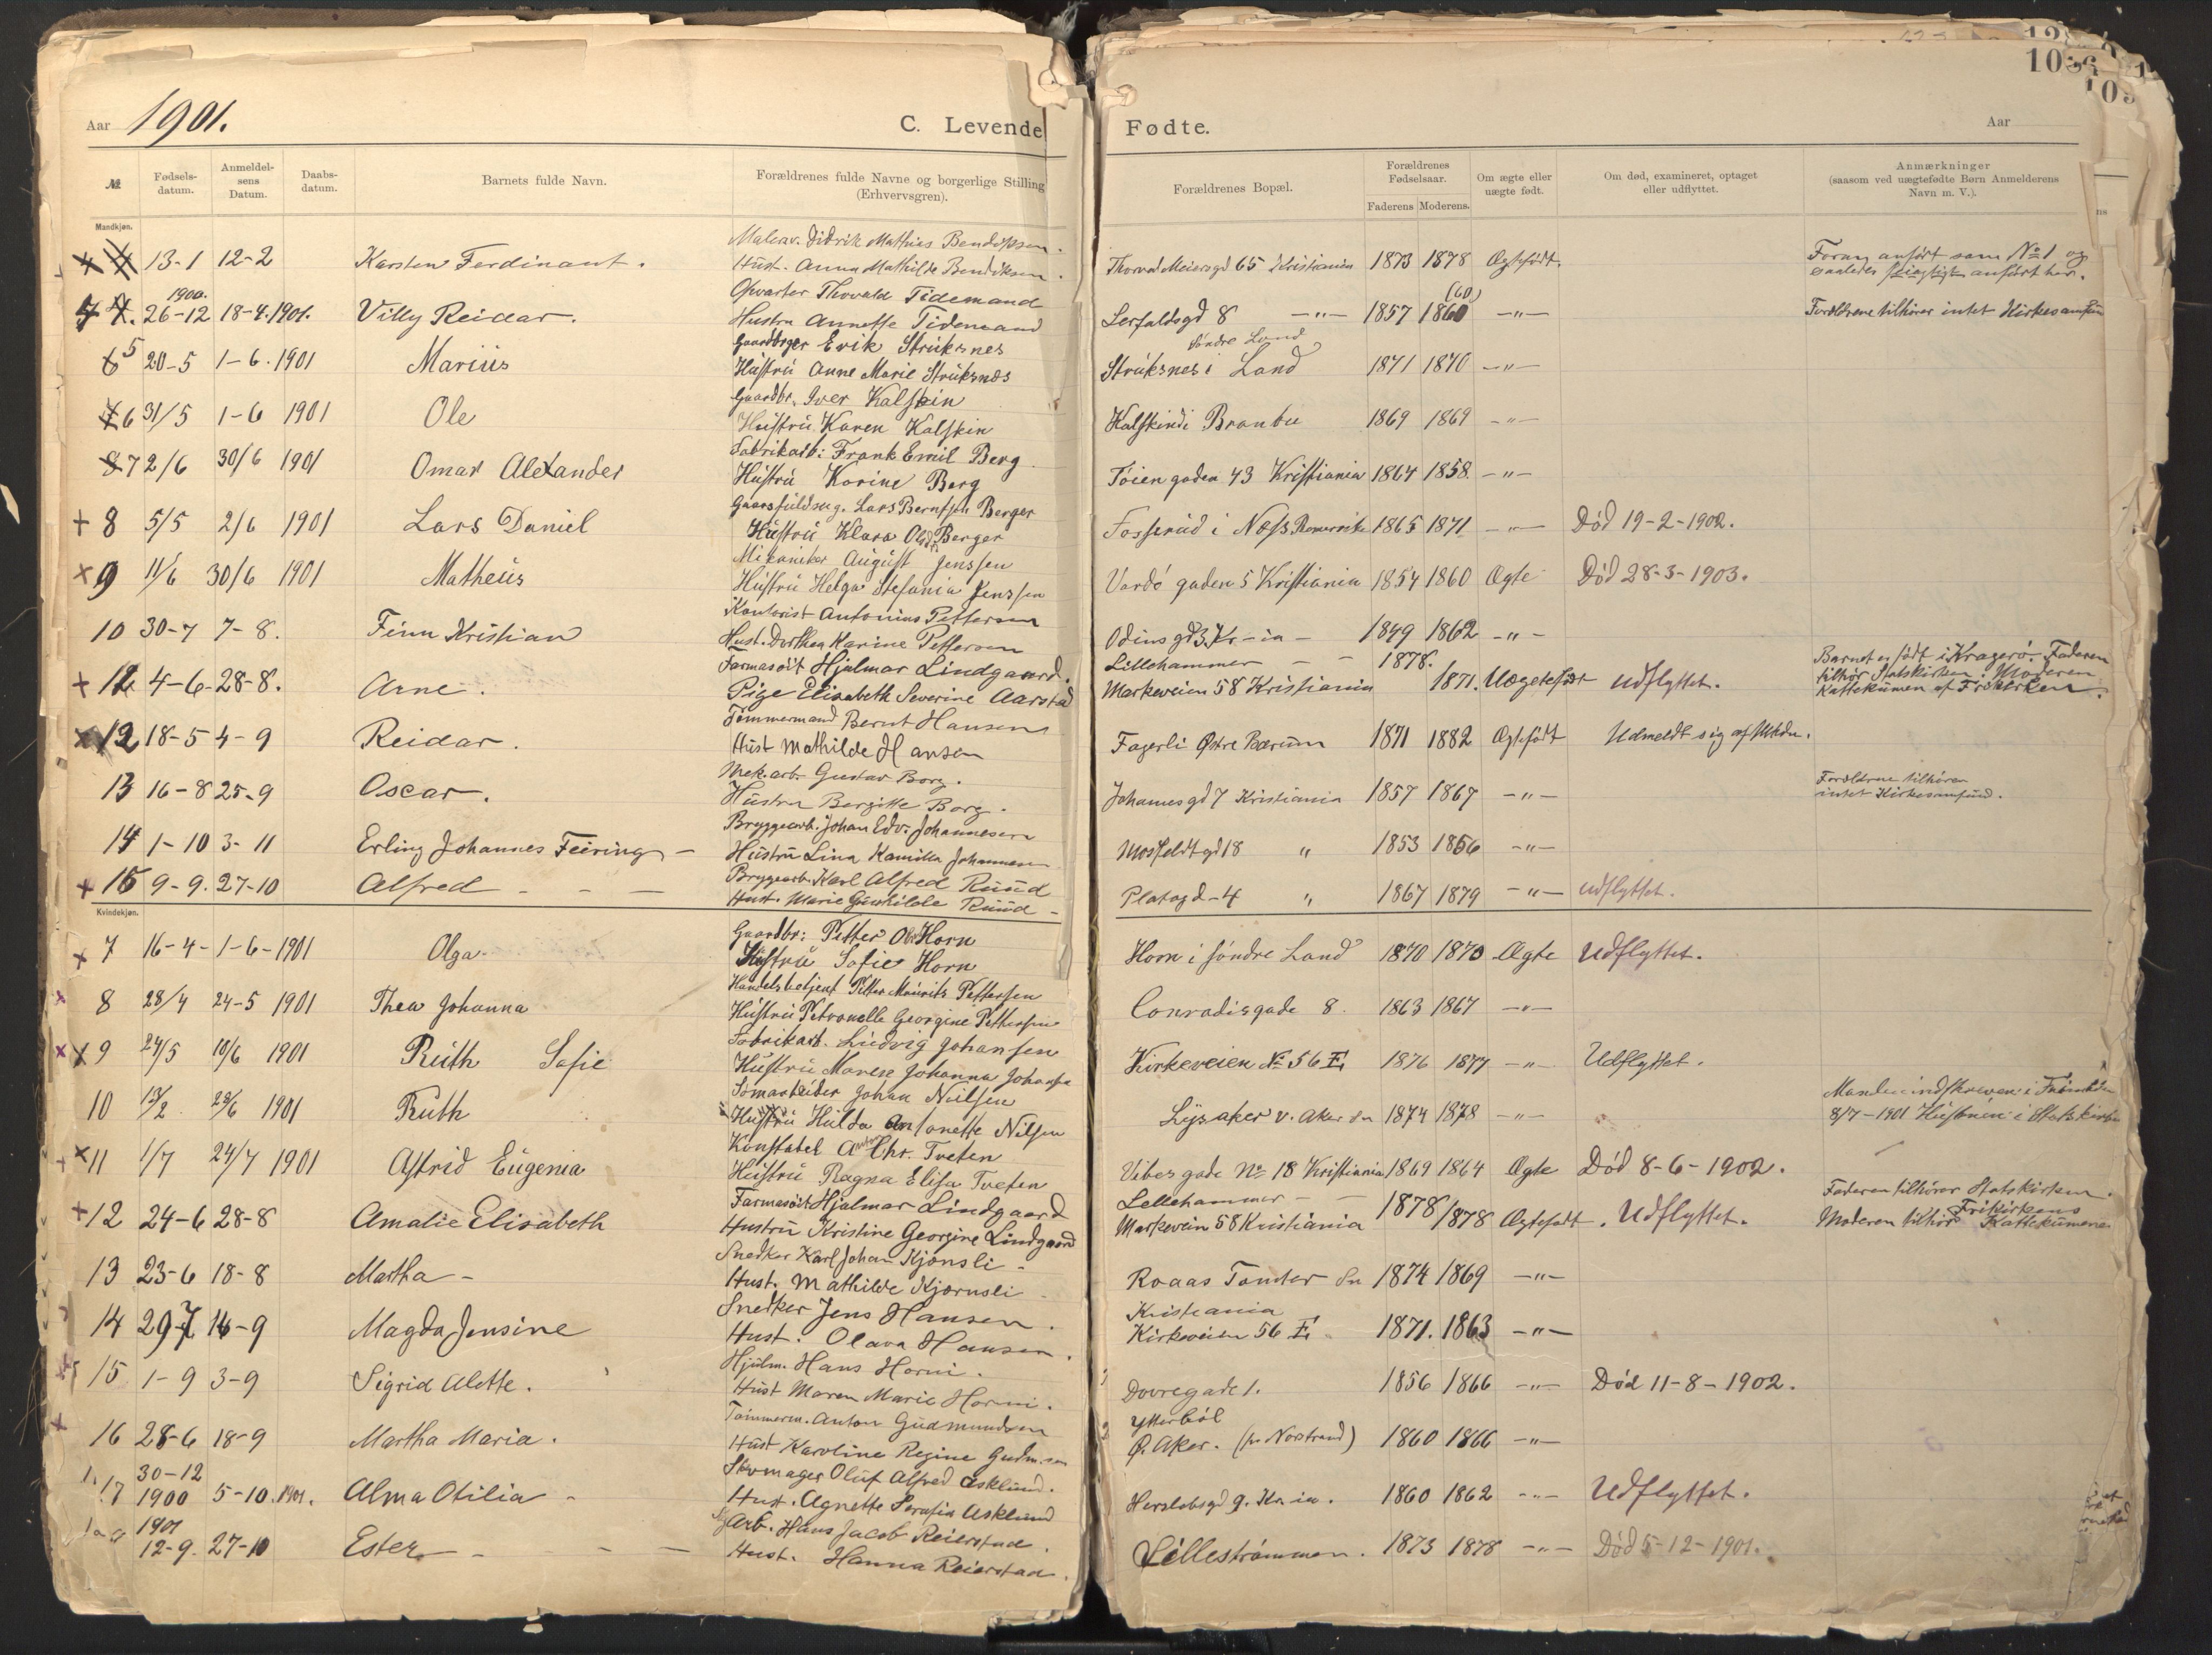 Aar 1901. C. Levende Fødte. Aar
103
109
№ Fødsels-datum. Anmeldel-sens Datum. Daabs-datum. Barnets fulde Navn. Forældrenes fulde Navne og borgerlige Stilling (Erhvervsgren). Forældrenes Bopæl. Forældrenes Fødselsaar. Faderens Moderens. Om ægte eller uægte født. Om død, examineret, optaget eller udflyttet. Anmærkninger (saasom ved uægtefødte Børn Anmelderens Navn m. V.).
Mandkjøn.
13-1 12-2 Karsten Ferdinant. Malerav. Didrik Mathias Bendiksen. Thorvd Meiersgd 65 Kristiania 1873 1878 Ægtefødt. Foran anført som No 1 og
Hust. Anna Mathilde Bendiksen. saaledes feiagtigt anført her.
1900. 26-12 18-4.1901. Villy Reidar. Thorvald Tidemand Lerfaldsgd 8 -"- 1857 1860 (60) -"- Forældrene tilhører intet Kirkesamfun
Hustru Annette Tidemand
5 20-5 1-6.1901 Marius Gaardbrger Erik Struksnes Struksnes i Søndre Land 1871 1870 -"-
Hustru Anne Marie Struksnæs
6 31/5 1-6 1901 Ole Gaardbr. Iver Kalskin Kalskind i Branbu 1869 1869 -"-
Hustru Karen Kalskin
7 2/6 30/6 1901 Omar Alexander Fabrikarb: Frank Emil Berg Tøiengaden 43 Kristiania 1864 1858 -"-
Hustru Karine Berg
+ 8 5/5 2/6 1901 Lars Daniel Lars Berntsen Berger Fosserud i Næss Romerike 1865 1871 -"- Död 19-2-1902.
Hustru Klara Olsdr. Berger
x 9 11/6 30/6 1901 Matheus Mekaniker August Jenssen Vardö gaden 5 Kristiania 1854 1860 Ægte Död 28-3-1903.
Hustru Helga Stefania Jenssen
10 30-7 7-8. Finn Kristian Kontorist Antonius Pettersen Odinsgd 3, Kr-ia - 1849 1862 -"-
Hust. Dorthea Karine Pettersen
+ 4-6- 28-8. Arne. Farmasöit Hjalmar Lindgaard. Lillehammer - - 1878. Barnet er født i Kragerø. Faderen
Pige Elisabeth Severine Aarstad Markeveien 58 Kristiania 1871. Uægtefødt udflyttet. tilhør Statskirken. Moderen
Kattekumen af Frikirken.
x 12 18-5 4-9 Reidar. Tømmermand Bernt Hansen Fagerli Østre Bærum 1871 1882 Ægtefødt Udmeldt sig af Mhdn.
Hust Mathilde Hansen
13 16-8 25-9 Oscar. Mek. arb. Gustav Borg. Johannesgd 7 Kristiania 1857 1867 -"- Forældrene tilhører
Hustru Bergitte Borg. intet Kirkesamfund.
14 1-10 3-11 Erling Johannes Feiring - Bryggearb. Johan Edv. Johannesen Mosfeldtgd 18 " 1853 1856 -"-
Hustru Lina Kamilla Johannesen
+ 15 9-9. 27-10 Alfred - - - Bryggearb. Karl Alfred Ruud Platogd-4 " 1867 1879 -"- udflyttet.
Hust. Marie Gunhilde Ruud -
Kvindekjøn.
x 7 16-4- 1-6-1901 Olga Gaardbr: Petter Olsn Horn Horn i söndre Land 1870 1870 Ægte Udflyttet.
Hustru Sofie Horn
x 8 28/4 24-5 1901 Thea Johanna Handelsbetjent Petter Mauritz Pettersen Conradisgade 8. 1863 1867 -"-
Hustru Petronelle Georgine Pettersen
x x 9 24/5 10/6 1901 Ruth Sofie Fabrikarb. Ludvig Johansen Kirkeveien No 56 E 1876 1877 -"- Udflyttet.
Hustru Marese Johanna Johansen
10 1901 Ruth Sömarbeider Johan Nielsen Lysaker v. Aker sn 1874 1878 -"- Manden indskreven i Frimhdn
Hustru Hulda Antonette Nilsen 8/7-1901 Hustruen i Statskirke
+ x 11 1/7 24/7 1901 Astrid Eugenia Konstabel Anton Chr. Tveten Vibesgade No 18 Kristiania 1869 1864 Ægte Död 8-6-1902.
Hustru Ragna Elisa Tveten
+ 12 24-6 28-8 Amalie Elisabeth Farmasöit Hjalmar Lindgaard Lellehammer - - 1878 1878 Ægtefødt. Udflyttet. Faderen tilhører Statskirken.
Hustru Kristine Georgine Lindgaard Markevein 58 Kristiania Moderen tilhør Frikirkens Kattekumene
13 23-6 18-8 Martha - Snedker Karl Johan Kjønsli - Roaas Tomter Sn 1874 1869 -"-
Hust. Mathilde Kjørnsli
14 29-7 14-9 Magda Jensine Snedker Jens Hansen. Kristiania
Hust. Olava Hansen. Kirkeveien 56 E 1871. 1863 -"-
15 1-9 3-9 Sigrid Alette. Hjulm. Hans Horni. Dovregade 1. 1856 1866 -"- Död 11-8-1902.
Hust Maren Marie Horni.
+ 16 28-6 18-9 Martha Maria. Tømmerm. Anton Gudmundsen Ytterböl
Hust Karoline Regine Gudm.sen Ø. Aker. (pr Norstrand) 1860 1866 -"-
17 30-12 1900 5-10.1901. Alma Otilia - Skomager Oluf Alfred Asklund. Herslebsgd 9. Kr.ia. 1860 1862 -"- Udflyttet.
Hust. Agnette Serafia Asklund
1901 12-9. 27-10 Ester - - - Arb. Hans Jacob Reierstad. Lillestrømmen. 1873 1878 -"- Död 5-12-1901.
Hust. Hanna Reierstad.